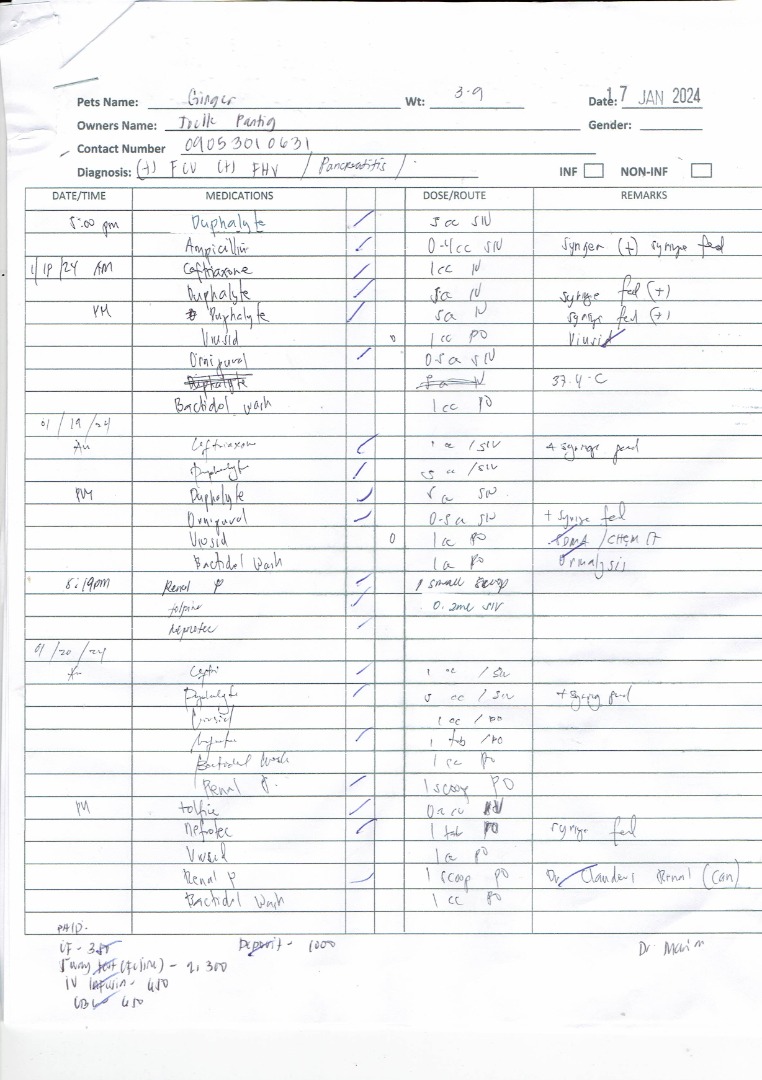 Pets Name: Ginger Wt: 3.9 Date: 17 JAN 2024
Owners Name: Gender:
Contact Number 09053010631
Diagnosis: (+) FCV (+) FHV / Pancreatitis / INF NON-INF
DATE/TIME MEDICATIONS DOSE/ROUTE REMARKS
5:00 pm Duphalyte 5 cc SIV
Ampicillin 0.4cc SIV (+) syringe fed
1/18/24 AM Ceftriaxone 1cc IV
Duphalyte 5cc IV syringe fed (+)
PM Duphalyte 5cc IV syringe fed (+)
Viusid 0 1 cc PO Viusid
Ornipural 0.5cc SIV
Duphalyte 5cc IV 37.4°C
Bactidol wash 1cc PO
01/19/24
AM Ceftriaxone 1 cc /SIV + syringe
Duphalyte 5 cc /SIV
PM Duphalyte 5cc SIV
Ornipural 0.5cc SIV + syringe fed
Viusid 0 1cc PO SDMA /CHEM
Bactidol Wash 1cc PO Urinalysis
8:19pm Renal P 1 small scoop
0.2ml SIV
01/20/24
AM Ceftri 1 cc /SIV
Duphalyte 5 cc /SIV + syringe
Viusid 1 cc /PO
1 tab /PO
Bactidol Wash 1 cc PO
Renal P. 1 scoop PO
PM
Nefrotec 1 tab PO syringe fed
Viusid 1cc PO
Renal P 1 scoop PO Dr. Clauders Renal (can)
Bactidol Wash 1 cc PO
PAID.
Deposit - 1000
5 way test (feline) - 2,300
450
CBC 650